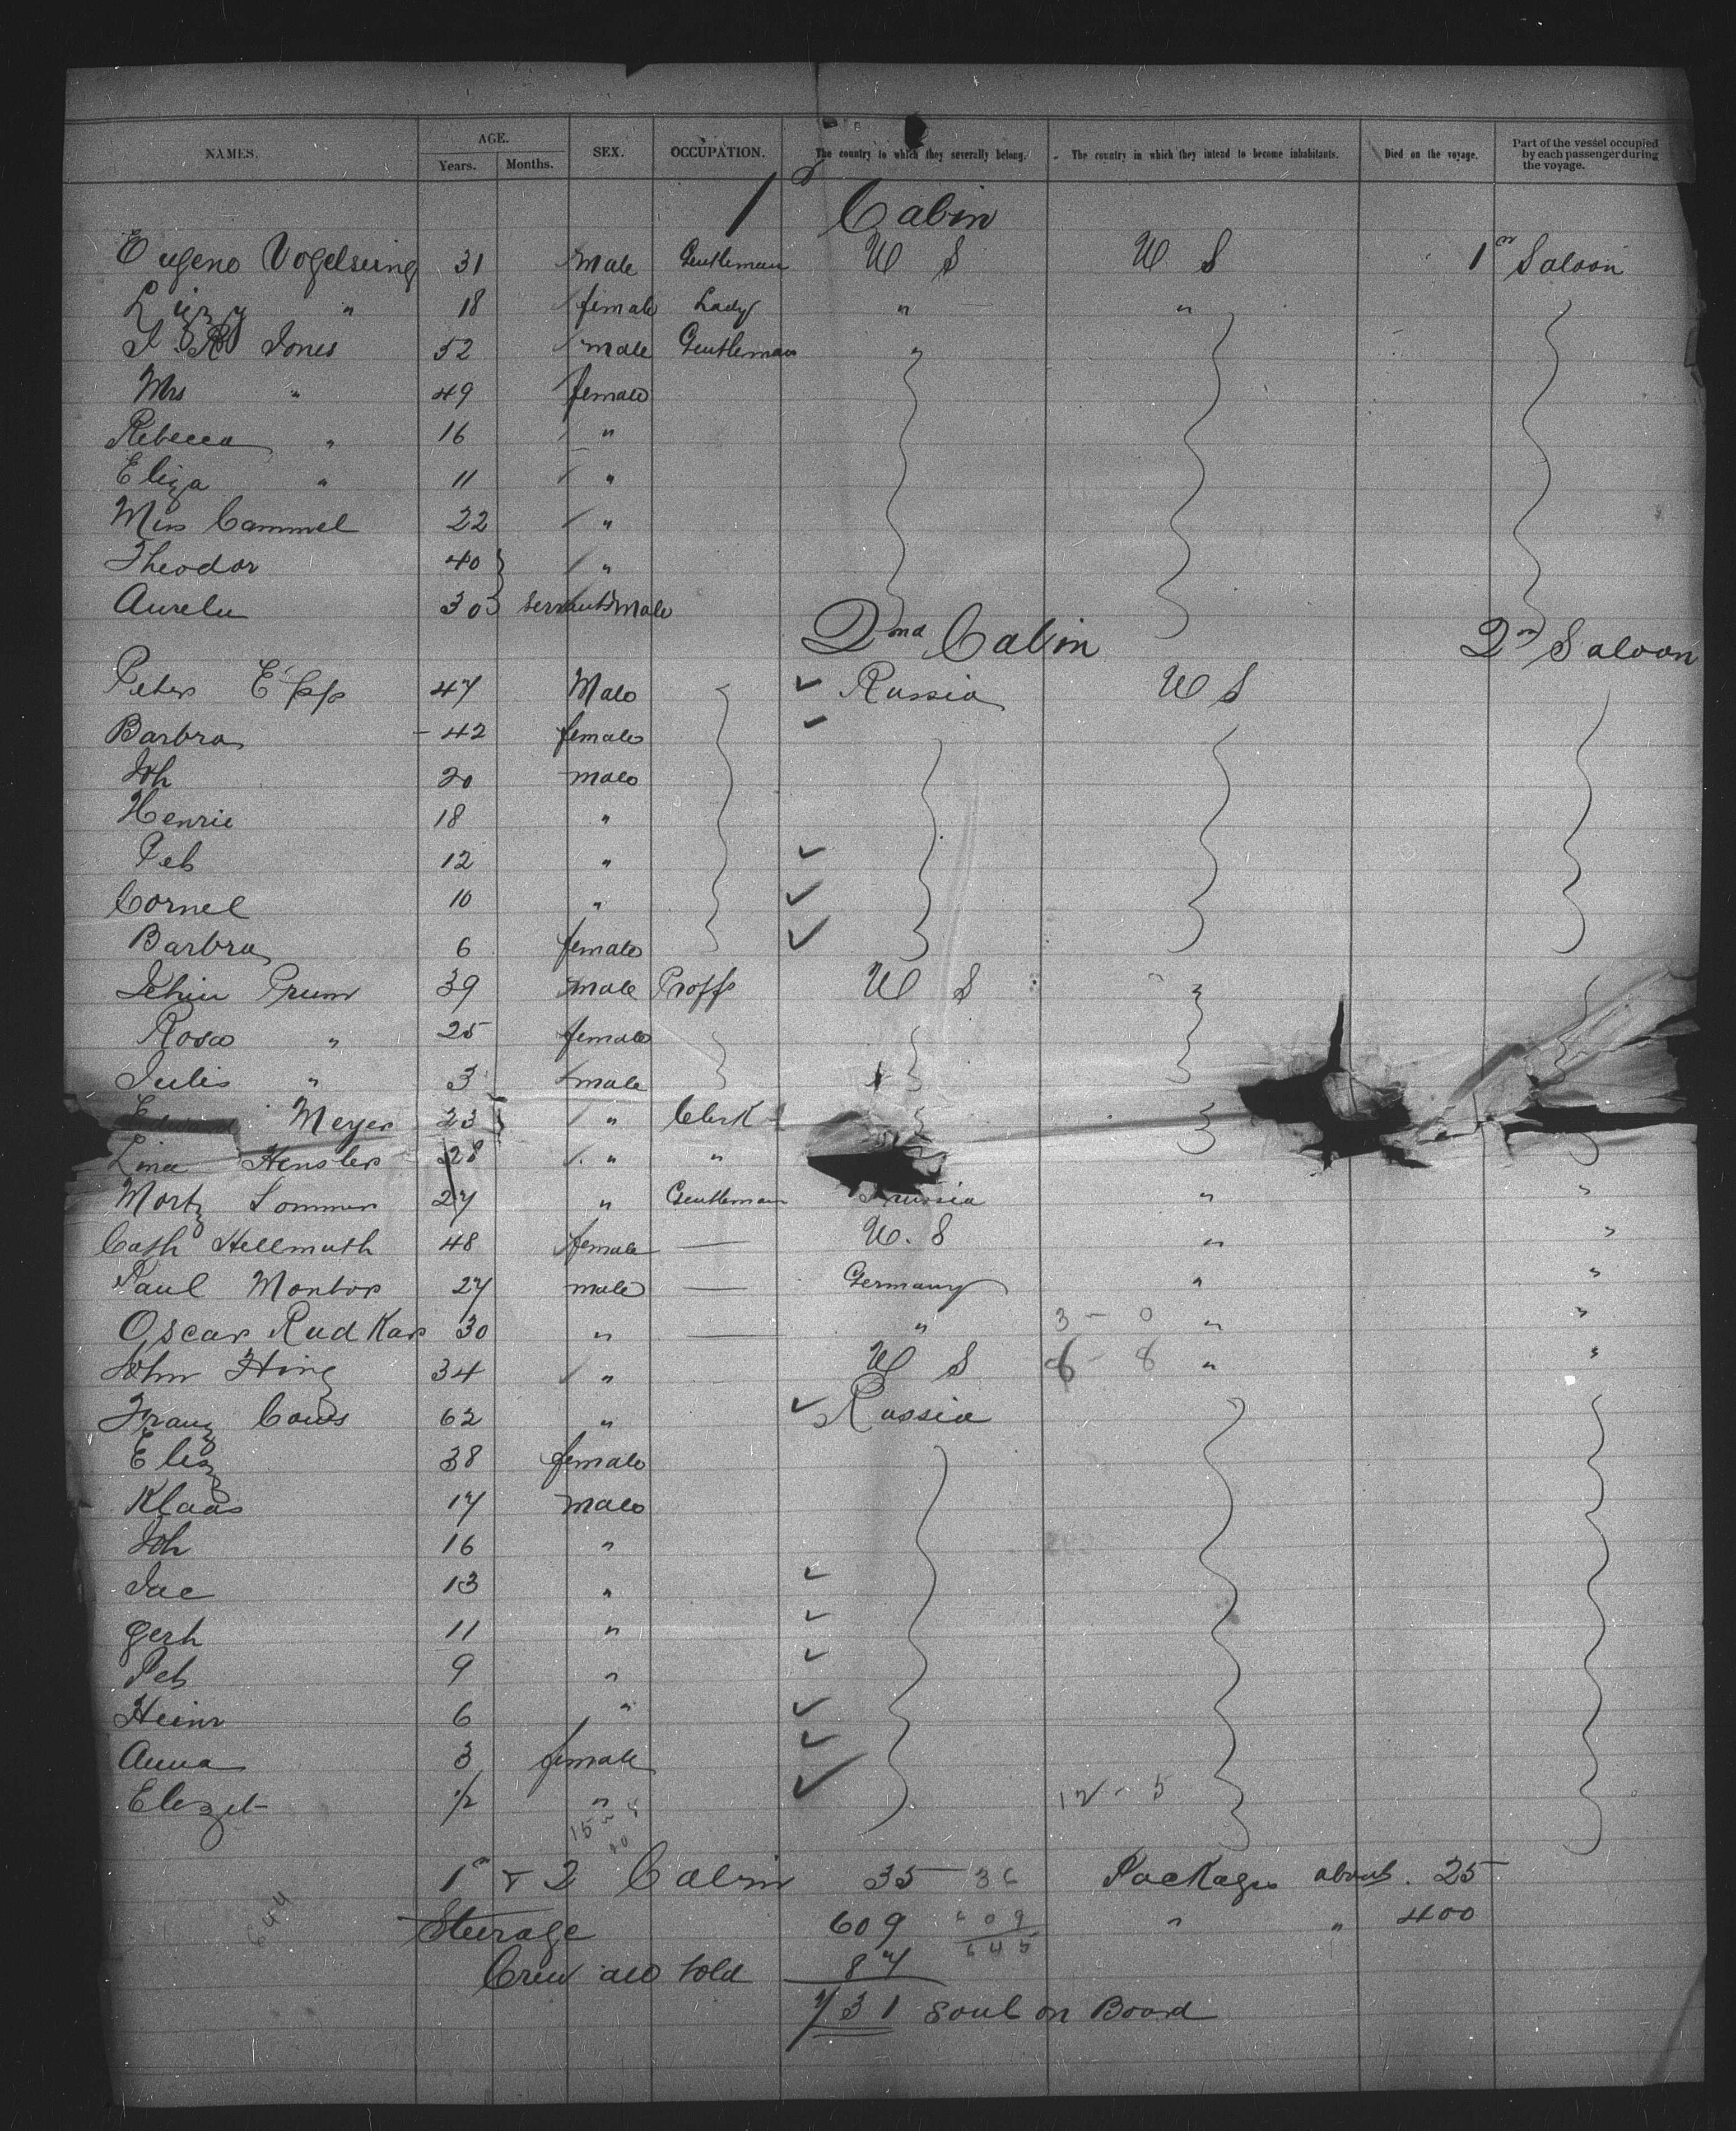 NAMES. AGE. Years. Months. SEX. OCCUPATION. The country to which they severally belong. The country in which they intend to become inhabitants. Died on the voyage. Part of the vessel occupied by each passenger during the voyage.
1st Cabin
Eugene Vogelseing 31 Male Gentleman U S U S 1st Saloon
Lizzy " 18 female Lady " "
J R Jones 52 male Gentleman "
Mrs " 49 female
Rebecca " 16 "
Eliza " 11 "
Miss Cammel 22 "
Theodor 40 "
Aurelu 30 servants male
2nd Cabin 2nd Saloon
Peter Epp 47 Male Russia U S
Barbra 42 female
Joh 20 male
Henrie 18 "
Pet 12 "
Cornel 10 "
Barbra 6 female
Prum 39 male Proff U S
Rosa " 25 female
Julis " 3 male
Meyer 23 " Clerk
Lina Hensler 28 " "
Mortz Sommer 27 " Gentleman "
Cath Hellmuth 48 female — U. S " "
Paul Montor 27 male — Germany " "
Oscar Rudkar 30 " — " 3 - 0 " "
John Hing 34 " U S 6 - 8 " "
Franz Cows 62 " Russia
Eliz 38 female
Klaas 17 male
Joh 16 "
Jac 13 "
Gerh 11 "
Pet 9 "
Heinr 6 "
Anna 3 female
Elizet 1/2 " 12 - 5
1st & 2 Cabin 35 36 Packages about . 25
Steerage 609 609 " " 400
645
Crew all told 87
731 Souls on Board
644